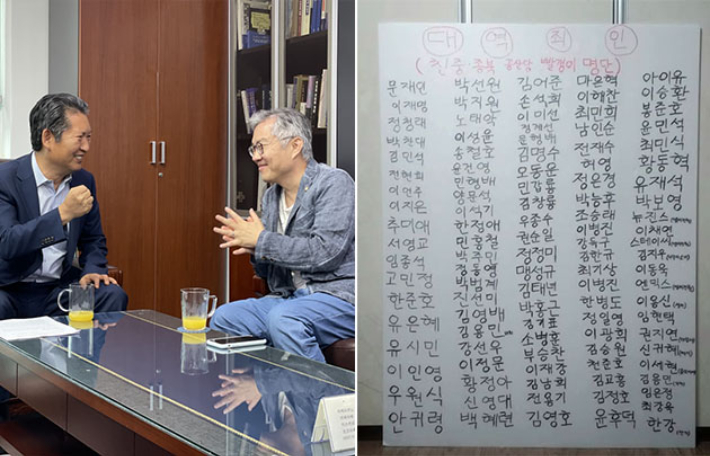 대역죄인
(친중·종북 공산당 빨갱이 명단)
문재인
이재명
정청래
박찬대
김민석
전현희
이언주
이지은
추미애
서영교
임종석
고민정
한준호
유은혜
유시민
이인영
우원식
안귀령
박선원
박지원
노태악
이성윤
송철호
윤건영
민형배
양문석
이석기
한정애
민홍철
박주민
정동영
박범계
진선미
김영배
김용민
강선우
이정문
황정아
신영대
백혜련
김어준
손석희
이미선
정계선
김명수
오동운
민갑룡
김창룡
우종수
권순일
정정미
맹성규
김태년
박홍근
김기표
소병훈
부승찬
이재강
김남희
전용기
김영호
마은혁
이해찬
최민희
남인순
전재수
허영
정은경
박능후
조승래
이병진
강득구
김한규
최기상
이병진
한병도
정일영
이광희
김승원
천준호
김교흥
김정호
윤후덕
아이유
이승환
봉준호
윤민석
최민식
황동혁
유재석
박보영
뉴진스
이채연
스테이씨
김지우
이동욱
엔믹스
이용신
임현택
권지연
신규혜
이서현
김용민
임은정
최강욱
한강